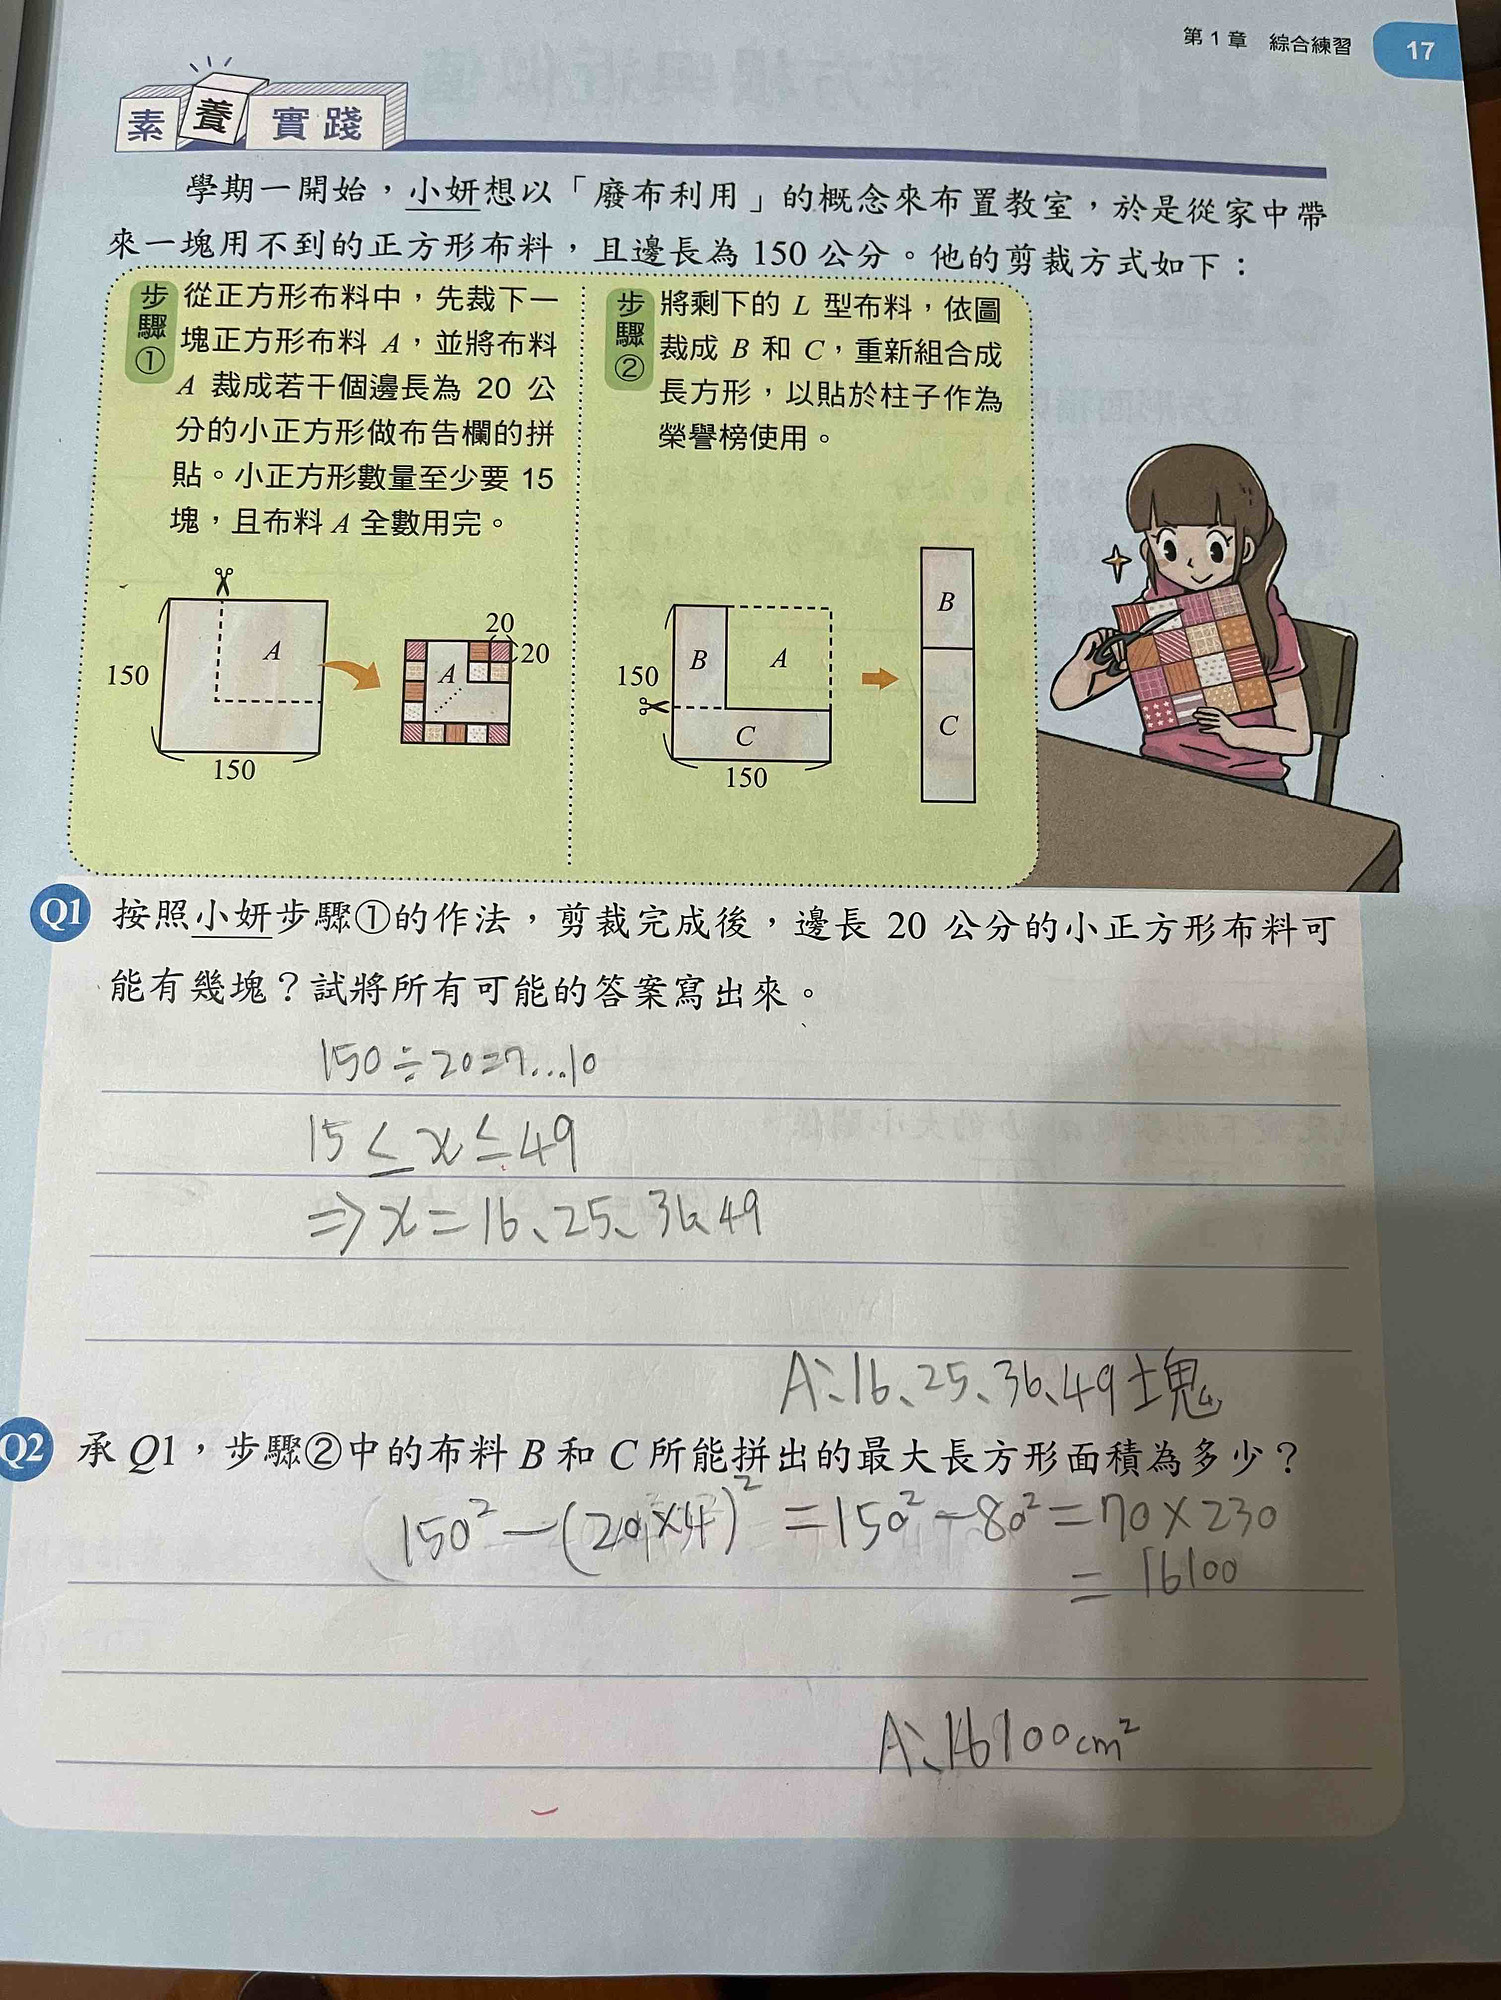 第1章 綜合練習 17
素養實踐
學期一開始，小妍想以「廢布利用」的概念來布置教室，於是從家中帶
來一塊用不到的正方形布料，且邊長為 150 公分。他的剪裁方式如下：
步驟①
從正方形布料中，先裁下一
塊正方形布料 A，並將布料
A 裁成若干個邊長為 20 公
分的小正方形做布告欄的拼
貼。小正方形數量至少要 15
塊，且布料 A 全數用完。
A
150
150
20
20
A
步驟②
將剩下的 L 型布料，依圖
裁成 B 和 C，重新組合成
長方形，以貼於柱子作為
榮譽榜使用。
B
A
150
C
150
B
C
Q1 按照小妍步驟①的作法，剪裁完成後，邊長 20 公分的小正方形布料可
能有幾塊？試將所有可能的答案寫出來。
150÷20=7...10
15≤x≤49
⇒x=16、25、36、49
A:16、25、36、49塊
Q2 承 Q1，步驟②中的布料 B 和 C 所能拼出的最大長方形面積為多少？
150²-(20×4)²=150²-80²=70×230
=16100
A:16100cm²